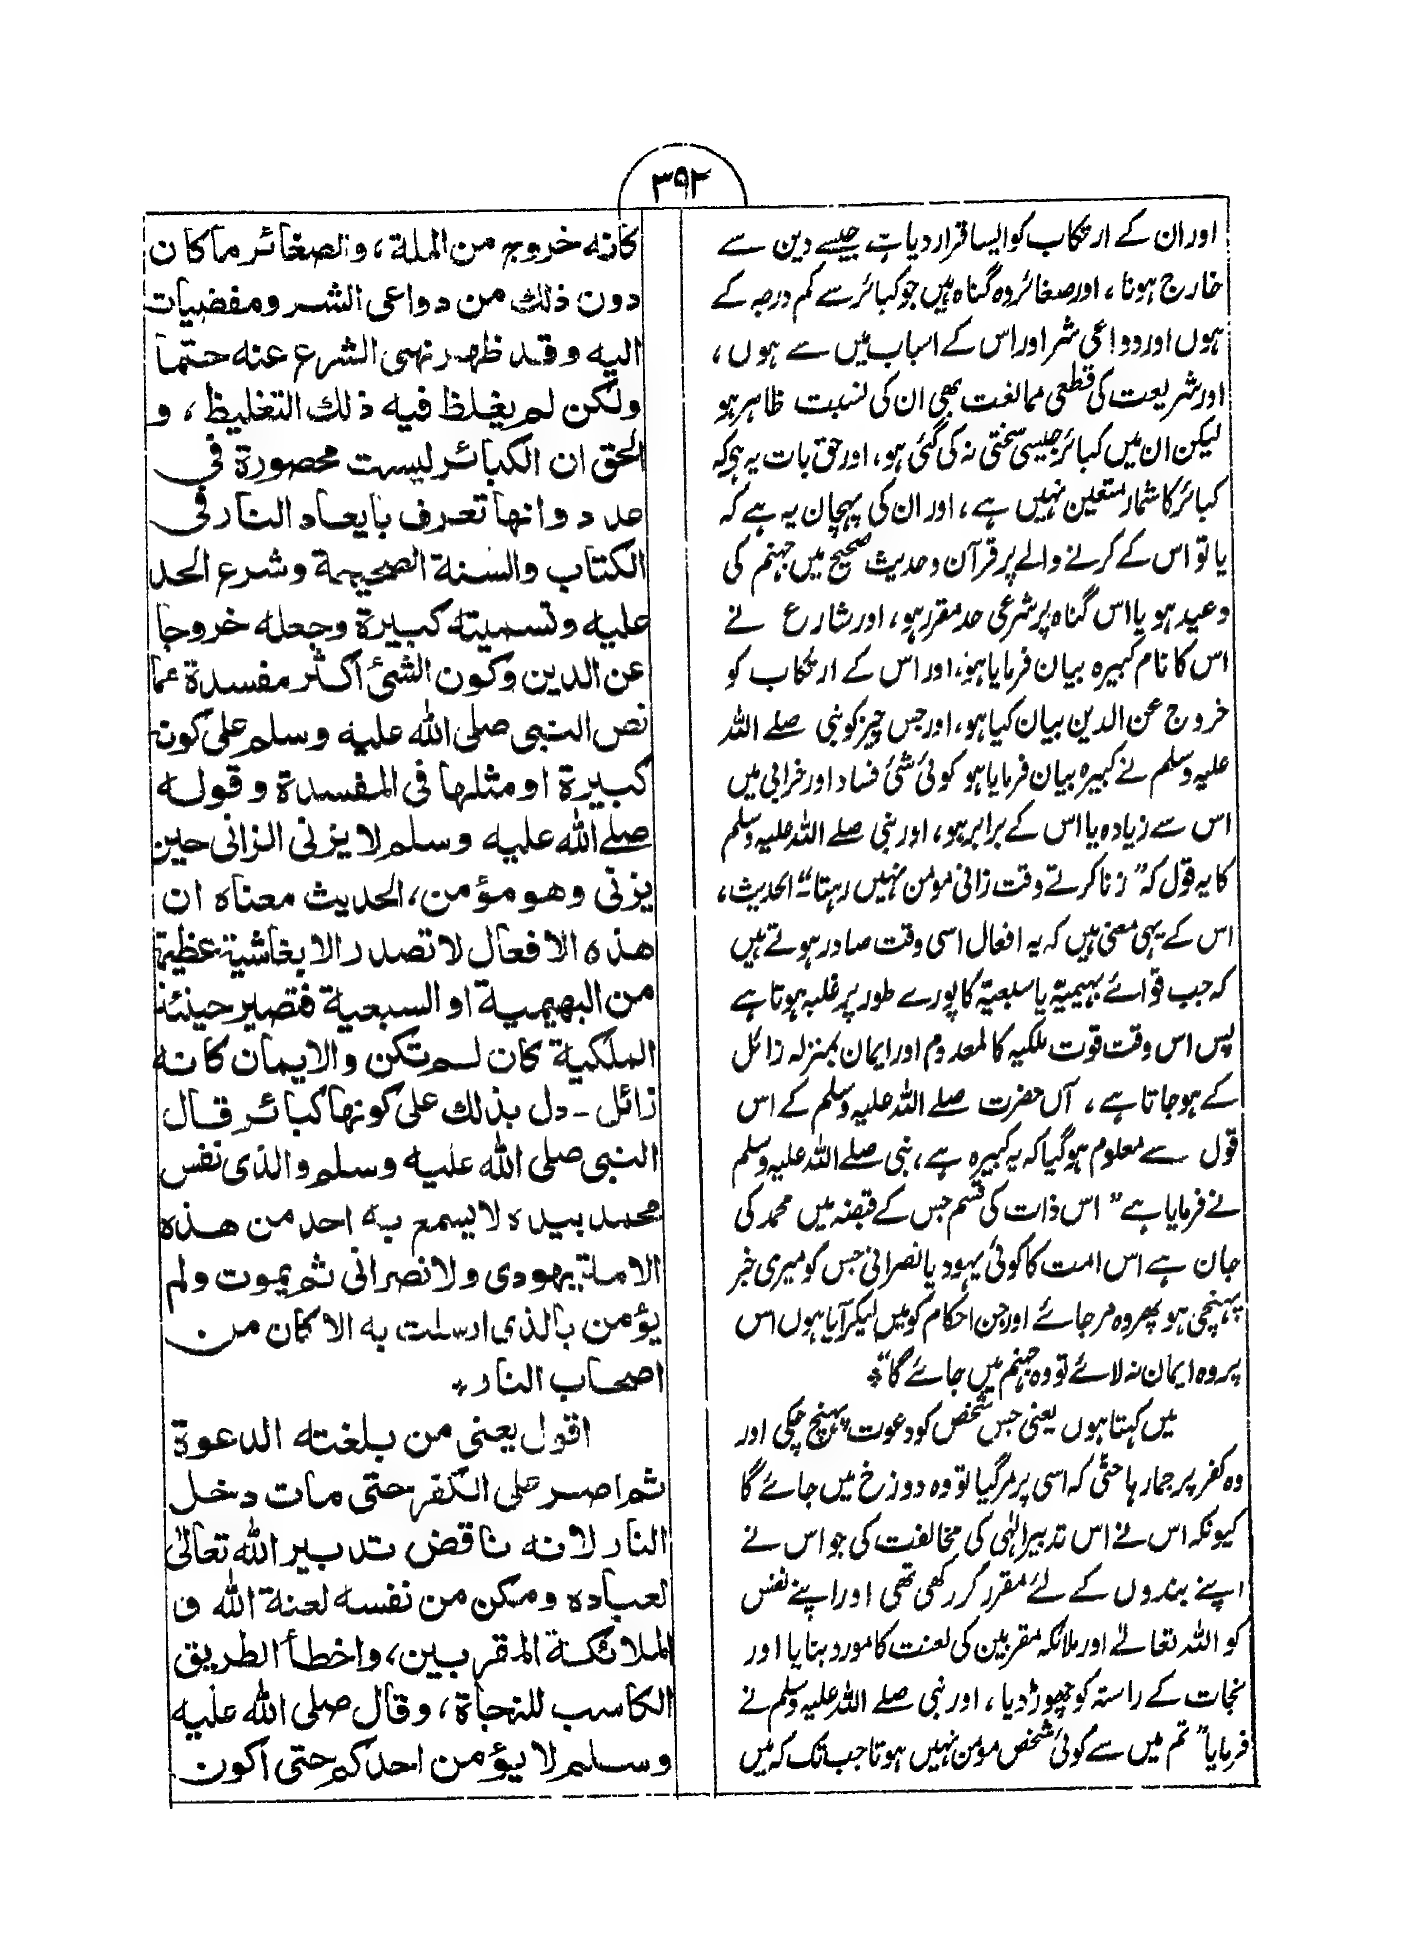 ۳۹۲
اور ان کے ارتکاب کو ایسا قرار دیا ہے، جیسے دین سے
خارج ہونا، اور صغائر وہ گناہ ہیں جو کبائر سے کم درجہ کے
ہوں اور دواعی شر اور اس کے اسباب میں سے ہوں،
اور شریعت کی قطعی ممانعت بھی ان کی نسبت ظاہر ہو
لیکن ان میں کبائر جیسی سختی نہ کی گئی ہو، اور حق بات یہ ہی کہ
کبائر کا شمار متعین نہیں ہے، اور ان کی پہچان یہ ہے کہ
یا تو اس کے کرنے والے پر قرآن و حدیث صحیح میں جہنم کی
وعید ہو یا اس گناہ پر شرعی حد مقرر ہو، اور شارع نے
اس کا نام کبیرہ بیان فرمایا ہو، اور اس کے ارتکاب کو
خروج عن الدین بیان کیا ہو، اور جس چیز کو نبی صلے اللہ
علیہ وسلم نے کبیرہ بیان فرمایا ہو کوئی شئ فساد اور خرابی میں
اس سے زیادہ یا اس کے برابر ہو، اور نبی صلے اللہ علیہ وسلم
کا یہ قول کہ "زنا کرتے وقت زانی مومن نہیں رہتا" الحدیث،
اس کے یہی معنی ہیں کہ یہ افعال اسی وقت صادر ہوتے ہیں
کہ جب قوائے بہیمیہ یا سبعیہ کا پورے طور پر غلبہ ہوتا ہے
پس اس وقت قوت ملکیہ کا لمعدوم اور ایمان بمنزلہ زائل
کے ہو جاتا ہے، آں حضرت صلے اللہ علیہ وسلم کے اس
قول سے معلوم ہو گیا کہ یہ کبیرہ ہے، نبی صلے اللہ علیہ وسلم
نے فرمایا ہے "اس ذات کی قسم جس کے قبضہ میں محمد کی
جان ہے اس امت کا کوئی یہود یا نصرانی جس کو میری خبر
پہنچی ہو پھر وہ مر جائے اور جن احکام کو میں لیکر آیا ہوں اس
پر وہ ایمان نہ لائے تو وہ جہنم میں جائے گا"*
میں کہتا ہوں یعنی جس شخص کو دعوت پہنچ چکی اور
وہ کفر پر جما رہا حتی کہ اسی پر مر گیا تو وہ دوزخ میں جائے گا
کیونکہ اس نے اس تدبیر الٰہی کی مخالفت کی جو اس نے
اپنے بندوں کے لئے مقرر کر رکھی تھی اور اپنے نفس
کو اللہ تعالے اور ملائکہ مقربین کی لعنت کا مورد بنایا اور
نجات کے راستہ کو چھوڑ دیا، اور نبی صلے اللہ علیہ وسلم نے
فرمایا "تم میں سے کوئی شخص مومن نہیں ہوتا جب تک کہ میں
كانه خروج من الملة، والصغائر ما كان
دون ذلك من دواعی الشر ومفضيات
اليه وقد ظهر نهی الشرع عنه حتما
ولكن لم يغلظ فيه ذلك التغليظ، و
الحق ان الكبائر ليست محصورة فی
عدد وانها تعرف بايعاد النار فی
الكتاب والسنة الصحيحة وشرع الحد
عليه وتسميته كبيرة وجعله خروجا
عن الدين وكون الشئ اكثر مفسدة مما
نص النبی صلی الله عليه وسلم علی كونه
كبيرة او مثلها فی المفسدة وقوله
صلے الله عليه وسلم لا يزنی الزانی حين
يزنی وهو مؤمن، الحديث معناه ان
هذه الافعال لا تصدر الا بغاشية عظيمة
من البهيمية او السبعية فتصير حينئذ
الملكية كان لم تكن والايمان كانه
زائل - دل بذلك علی كونها كبائر قال
النبی صلی الله عليه وسلم والذی نفس
محمد بيده لا يسمع به احد من هذه
الامة يهودی ولا نصرانی ثم يموت ولم
يؤمن بالذی ارسلت به الا كان من
اصحاب النار*
اقول يعنی من بلغته الدعوة
ثم اصر علی الكفر حتی مات دخل
النار لانه ناقض تدبير الله تعالیٰ
لعباده ومكن من نفسه لعنة الله و
الملائكة المقربين، واخطأ الطريق
الكاسب للنجاة، وقال صلی الله عليه
وسلم لا يؤمن احدكم حتی اكون